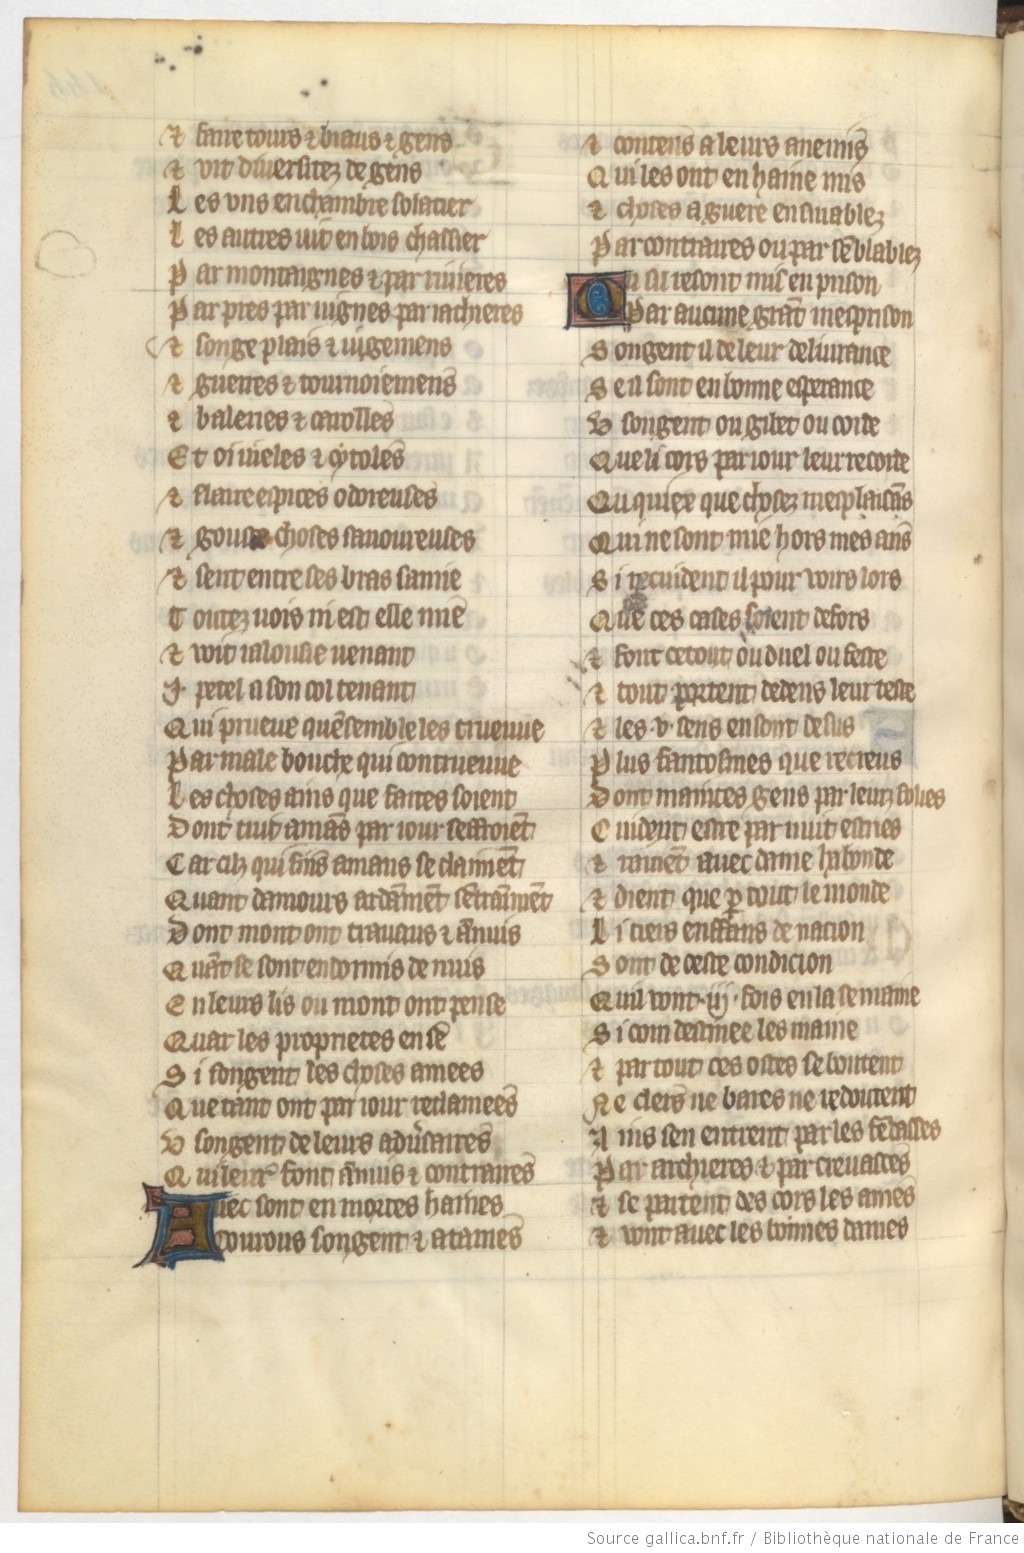 ⁊ faire tours ⁊ biaus ⁊ gens
⁊ vit diuersitez de gens
L es vns en chambre solacier
L es autres uit en bois chassier
P ar montaignes ⁊ par riuieres
P ar pres par uignes par iachieres
⁊ songe plais ⁊ iugemens
⁊ guerres ⁊ tournoiemens
⁊ baleries ⁊ carolles
Et oi uieles ⁊ cytoles
⁊ flaire espices odoreuses
⁊ gouste choses sauoureuses
⁊ sent entre ses bras samie
T outez uois ni est elle mie
⁊ voit ialousie uenant
J petel a son col tenant
Q ui prueue quensemble les trueuue
P ar male bouche qui contrueuue
L es choses ains que faites soient
D ont tuit amās par iour seffroient
C ar cilz qui fins amans se claimēt
Q uant damours ardāmēt sētraimēt
D ont mont ont trauaus ⁊ ānuis
Q uāt se sont endormis de nuis
E n leurs lis ou mont ont pense
Q uar les proprietes en sē
S i songent les choses amees
Q ue tant ont par iour reclamees
V songent de leurs aduersaires
Q ui leur font ānuis ⁊ contraires
A uec sont en mortes haines
C ourous songent ⁊ ataines
⁊ contens a leurs anemis
Q ui les ont en haine mis
⁊ choses a guere ensiuablez
P ar contraires ou par sēblablez
O u sil resont mis en prison
Par aucune grāt mesprison
S ongent il de leur deliurance
S e il sont en bonne esperance
V songent ou gibet ou corde
Q ue li cors par iour leur recorde
Q u quiex que chosez mesplaisās
Q ui ne sont mie hors mes ans
S i recuident il pour voirs lors
Q ue ces cases soient defors
⁊ font ce tout ou duel ou feste
⁊ tout portent dedens leur teste
⁊ les .v. sens en sont desus
P lus fantosmes que receus
D ont maintes gens par leurz folies
C uident estre par nuit estries
⁊ raiuēt auec dame habonde
⁊ dient que par tout le monde
L i tiers enffans de nacion
S ont de ceste condicion
Quil vont .iij. fois en la semaine
S i com destinee les maine
⁊ par tout ces ostes se boutent
N e clers ne bares ne redoutent
A ins sen entrent par les fēdasses
P ar archieres ⁊ par creuasces
⁊ se partent des cors les ames
⁊ vont auec les bonnes dames
Source gallica.bnf.fr / Bibliothèque nationale de France